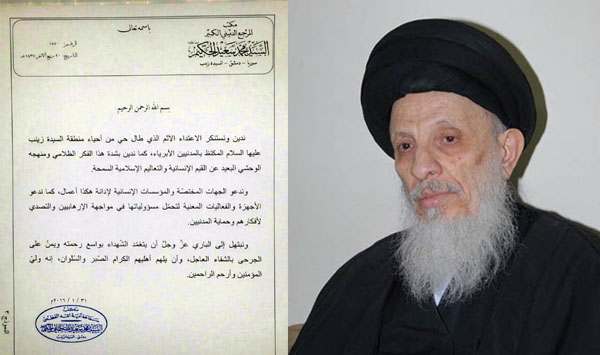 باسمه تعالى
مكتب
المرجع الديني الكبير
السيد محمد سعيد الحكيم
سوريا - دمشق - السيدة زينب
بسم الله الرحمن الرحيم
ندين ونستنكر الاعتداء الآثم الذي طال حي من أحياء منطقة السيدة زينب
عليها السلام المكتظ بالمدنيين الأبرياء، كما ندين بشدة هذا الفكر الظلامي ومنهجه
الوحشي البعيد عن القيم الإنسانية والتعاليم الإسلامية السمحة.
وندعو الجهات المختصة والمؤسسات الإنسانية لإدانة هكذا أعمال، كما ندعو
الأجهزة والفعاليات المعنية لتحمّل مسؤولياتها في مواجهة الإرهابيين والتصدي
لأفكارهم وحماية المدنيين.
ونبتهل إلى الباري عزّ وجلّ أن يتغمّد الشّهداء بواسع رحمته ويمنّ على
الجرحى بالشفاء العاجل، وأن يلهم أهليهم الكرام الصّبر والسّلوان، إنه وليّ
المؤمنين وأرحم الراحمين.
٣١ / ١ / ٢٠١٦م
مكتب
السيد محمد سعيد الحكيم